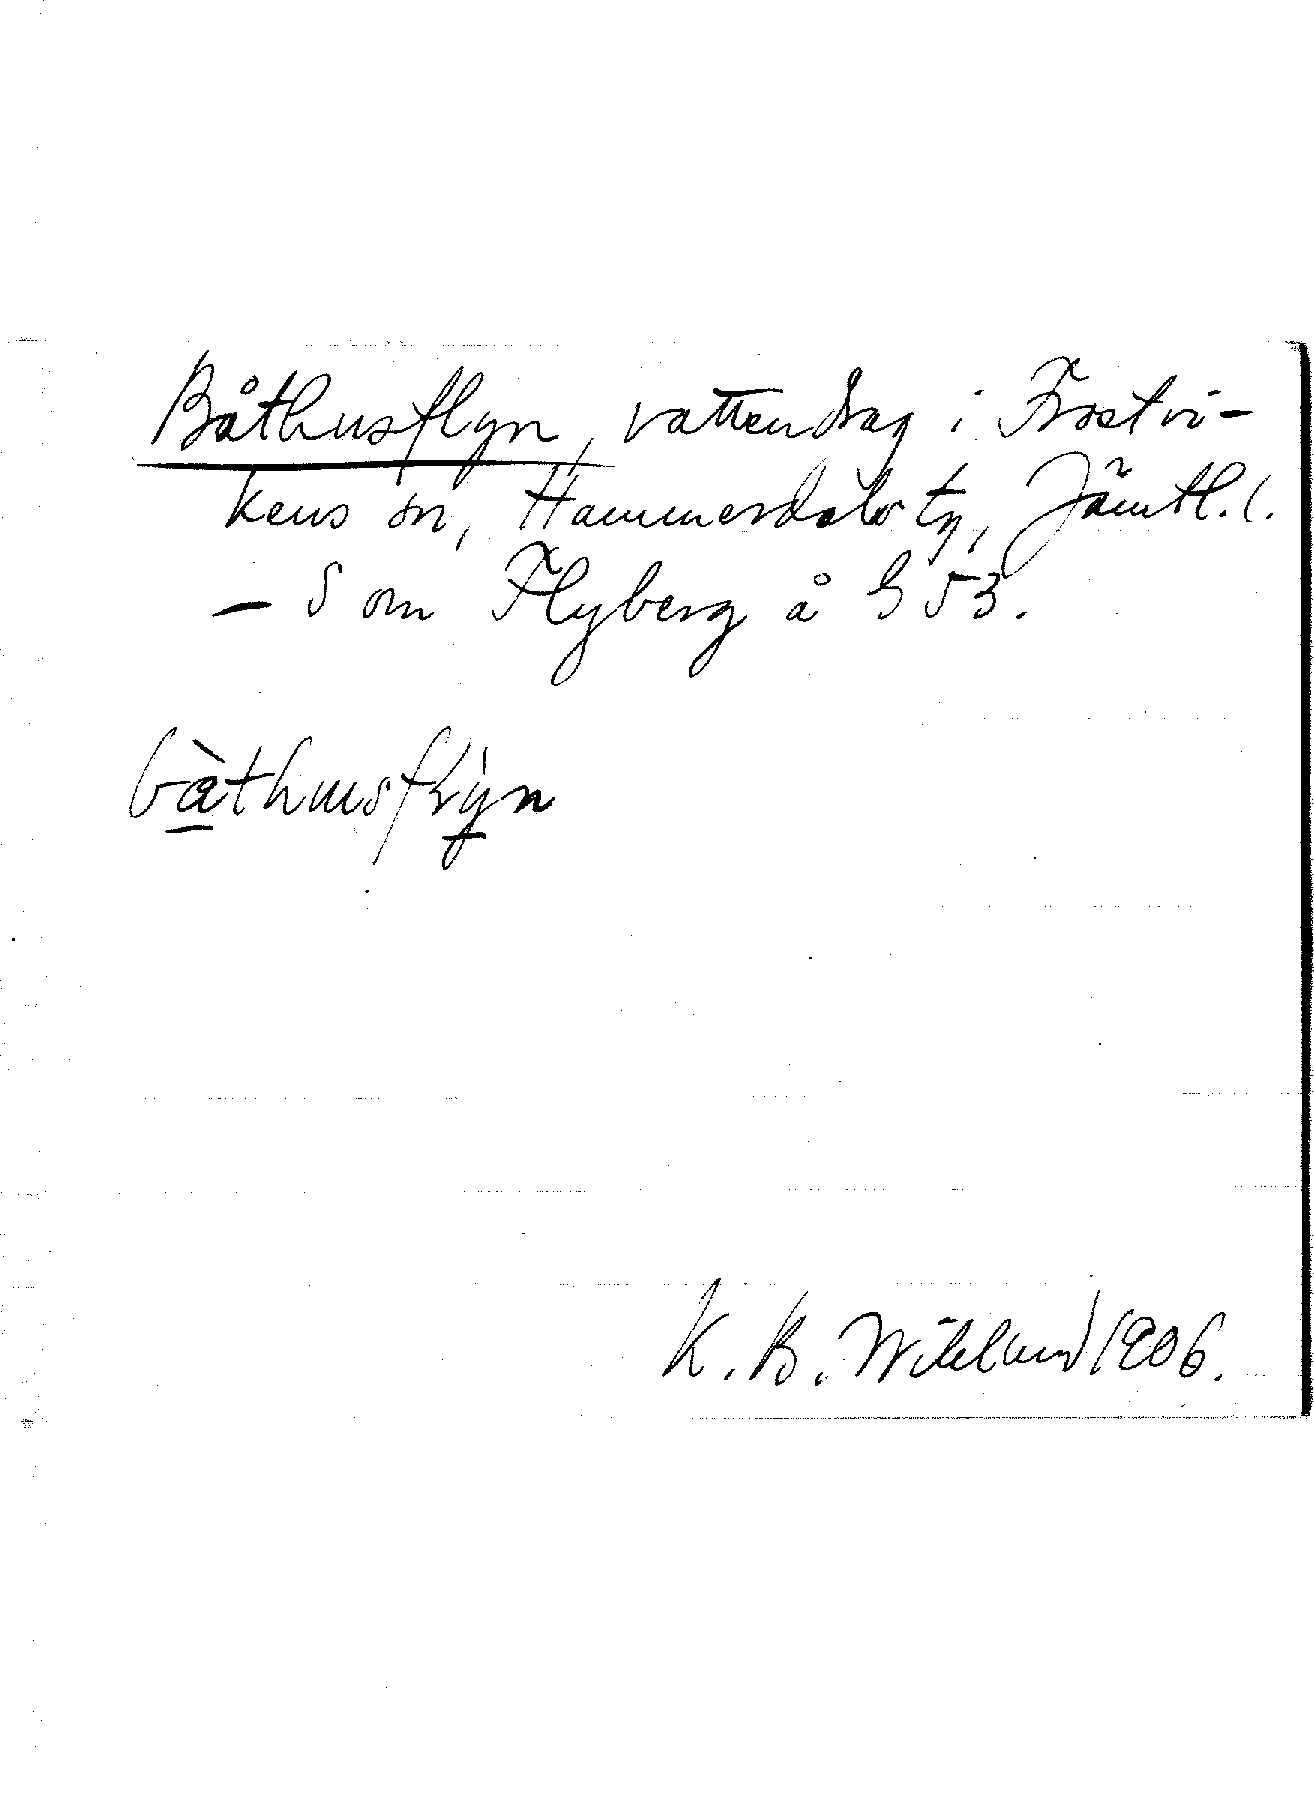 Båthusflyn, vattendrag i Frostvi-
kens sn, Hammerdals tg, Jämtl. l.
— S om Flyberg å G 53.
bàthusflỳn
K. B. Wiklund 1906.